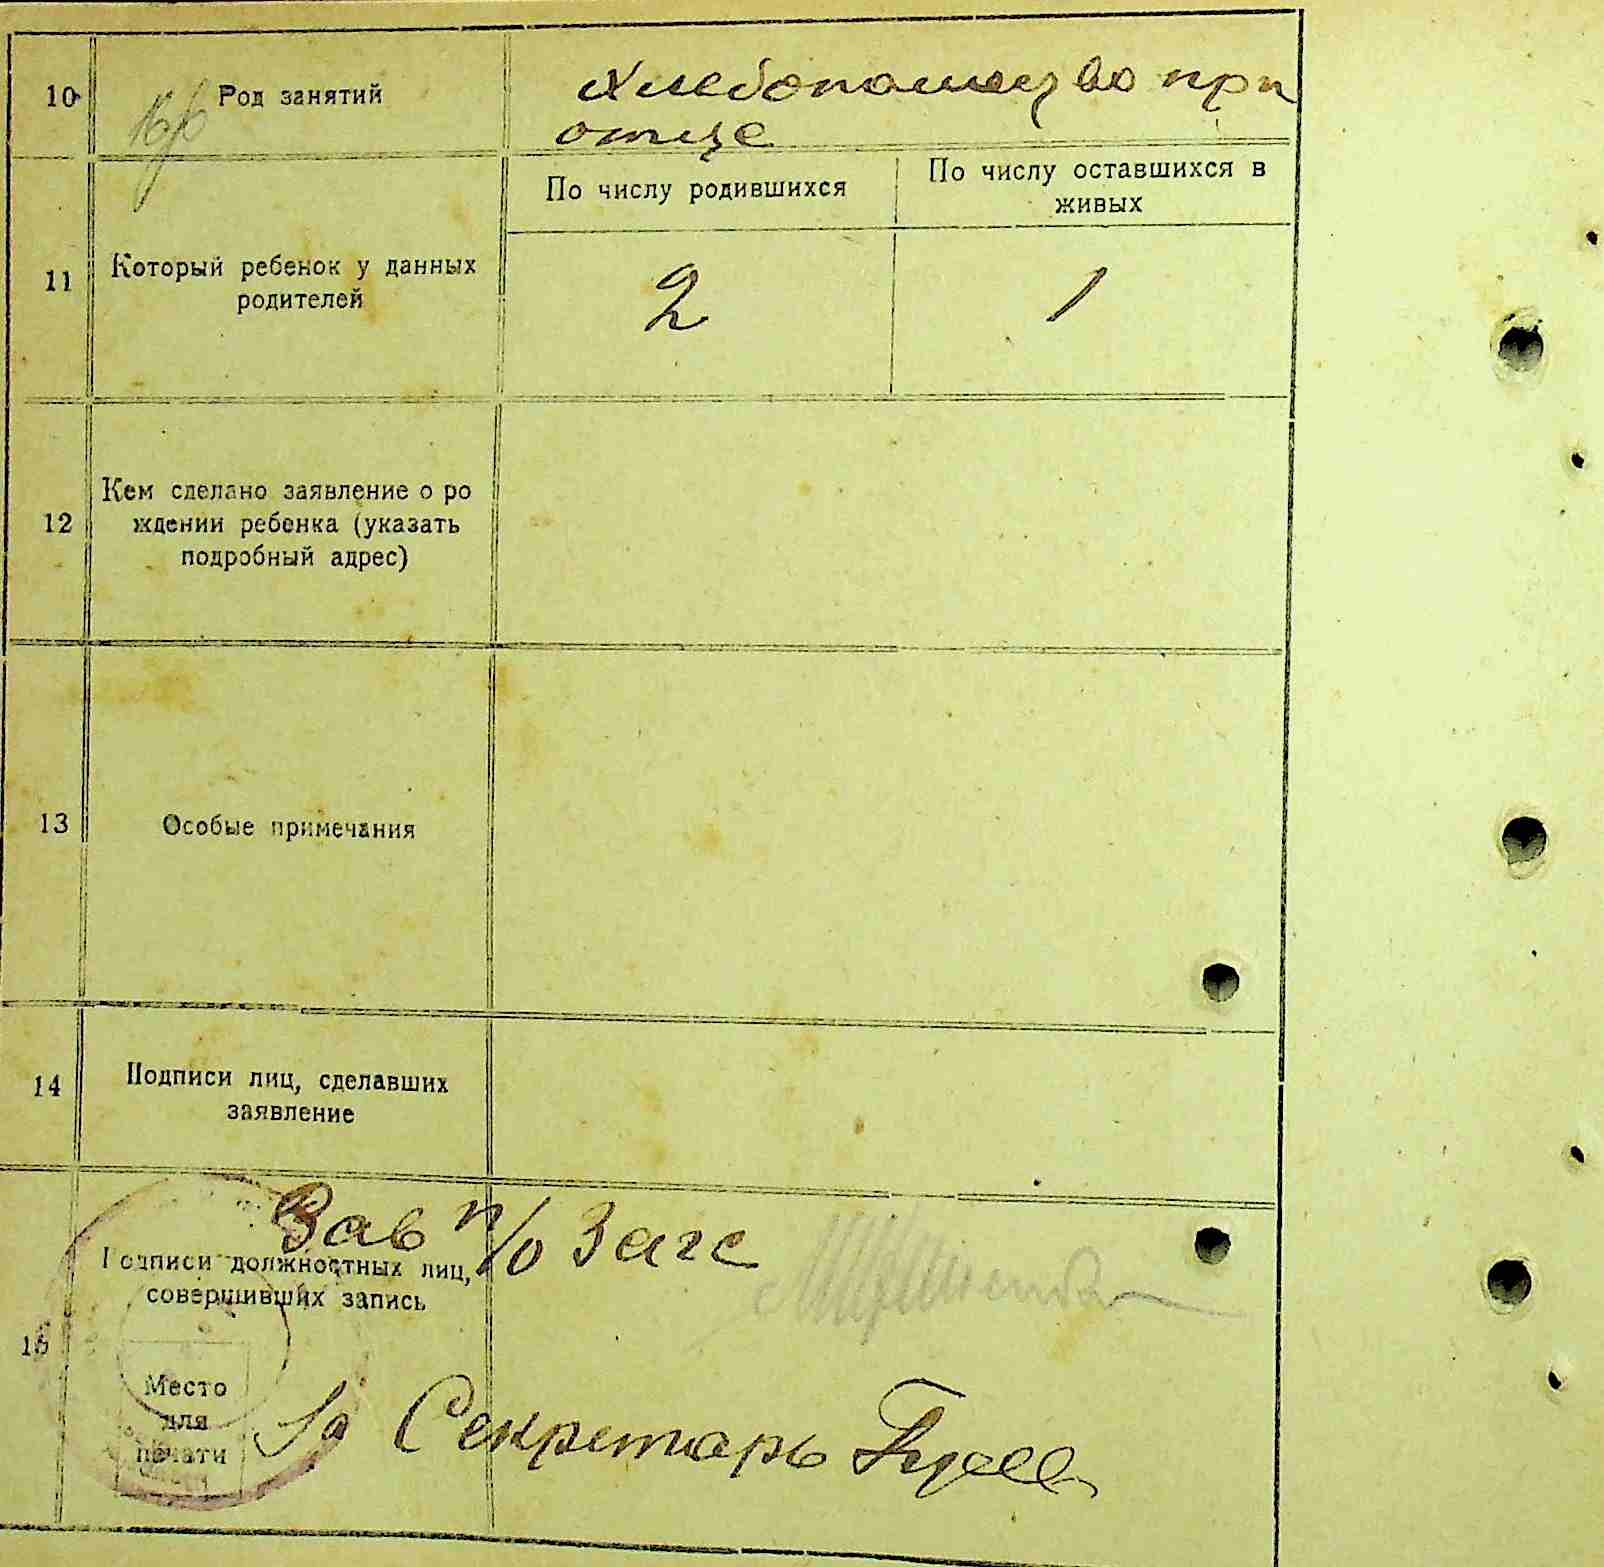 10 Род занятий Хлебопашество при
отце
По числу родившихся
По числу оставшихся в
живых
11 Который ребенок у данных
родителей
2 1
12 Кем сделано заявление о ро
ждении ребенка (указать
подробный адрес)
13 Особые примечания
14 Подписи лиц, сделавших
заявление
Зав п/о Загс
Подписи должностных лиц,
совершивших запись
15
Место
для
печати
Секретарь